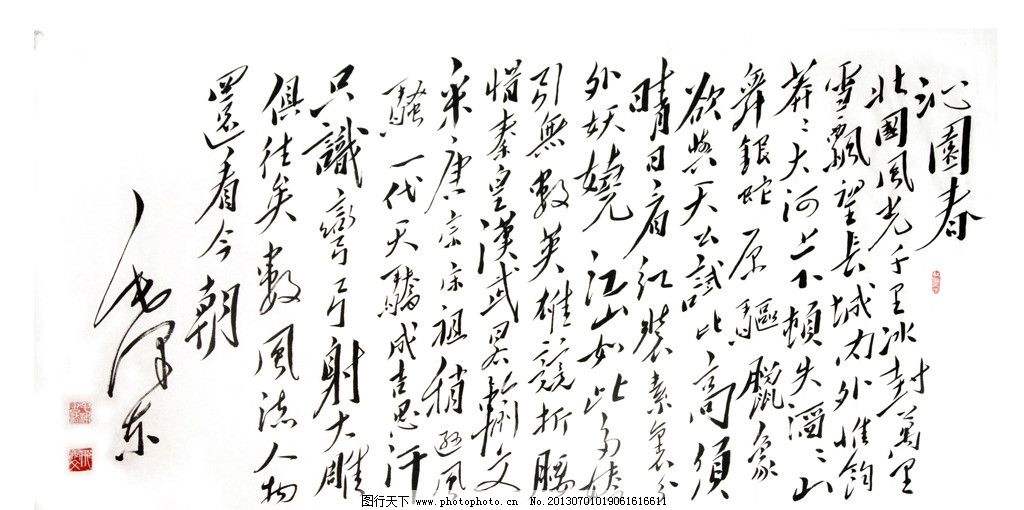 沁園春
北國風光千里冰封萬里
雪飄望長城內外惟餘
莽〻大河上下頓失滔〻山
舞銀蛇原驅臘象
欲與天公試比高須
晴日看紅裝素裹分
外妖嬈江山如此多嬌
引無數英雄競折腰
惜秦皇漢武略輸文
采唐宗宋祖稍遜風
騷一代天驕成吉思汗
只識彎弓射大雕
俱往矣數風流人物
還看今朝
毛澤東
图行天下 www.photophoto.cn No.20130701019061616611